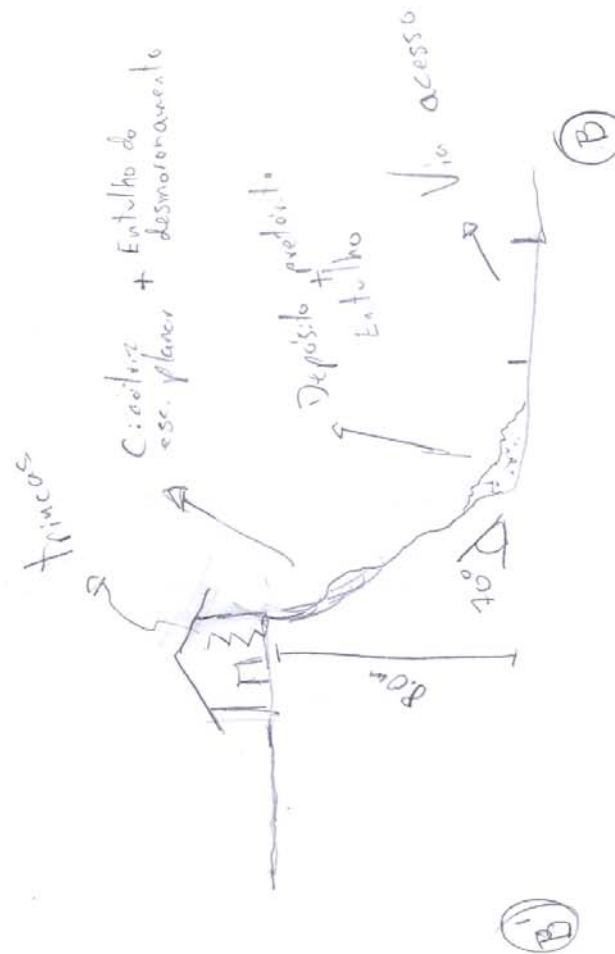 trincas
Cicatriz
esc. planar + Entulho do
desmoronamento
Depósito pretérito
+
Entulho
Via acesso
8.0m
70°
B'
B